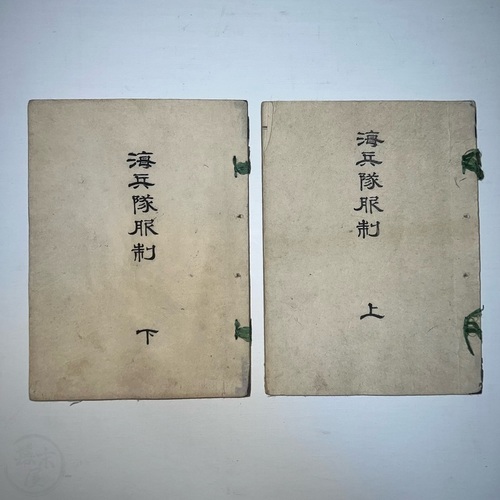 海兵隊服制
上
海兵隊服制
下